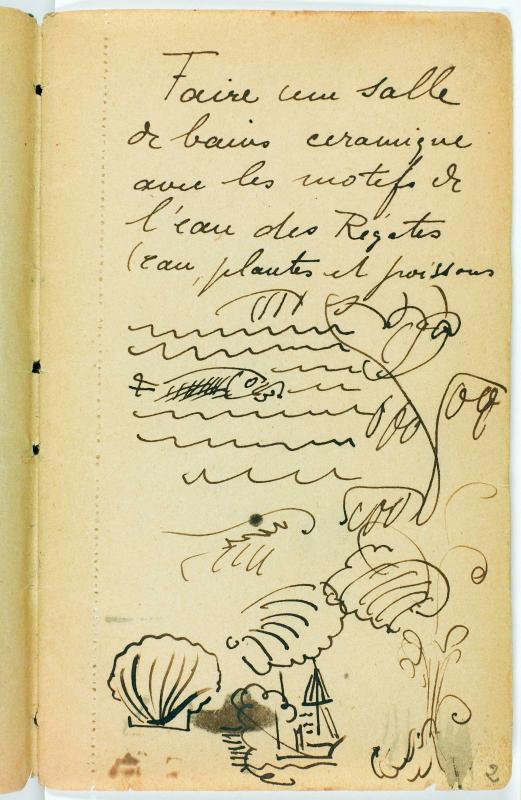 Faire une salle
de bains ceramique
avec les motifs de
l'eau des Régates
(eau, plantes et poissons
2